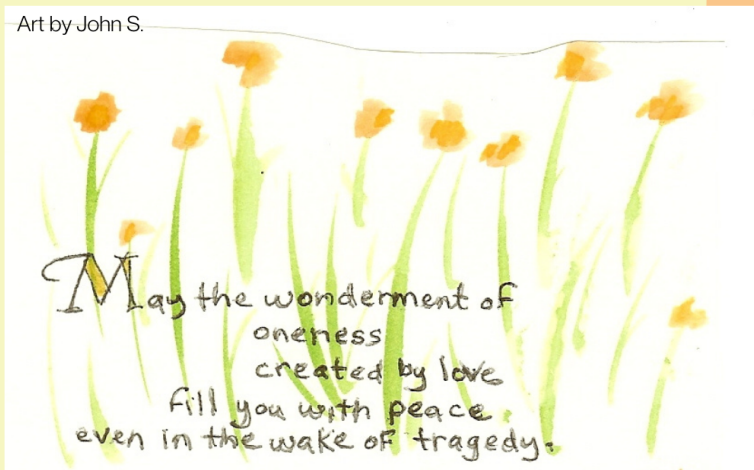 Art by John S.
May the wonderment of
oneness
created by love
fill you with peace
even in the wake of tragedy.